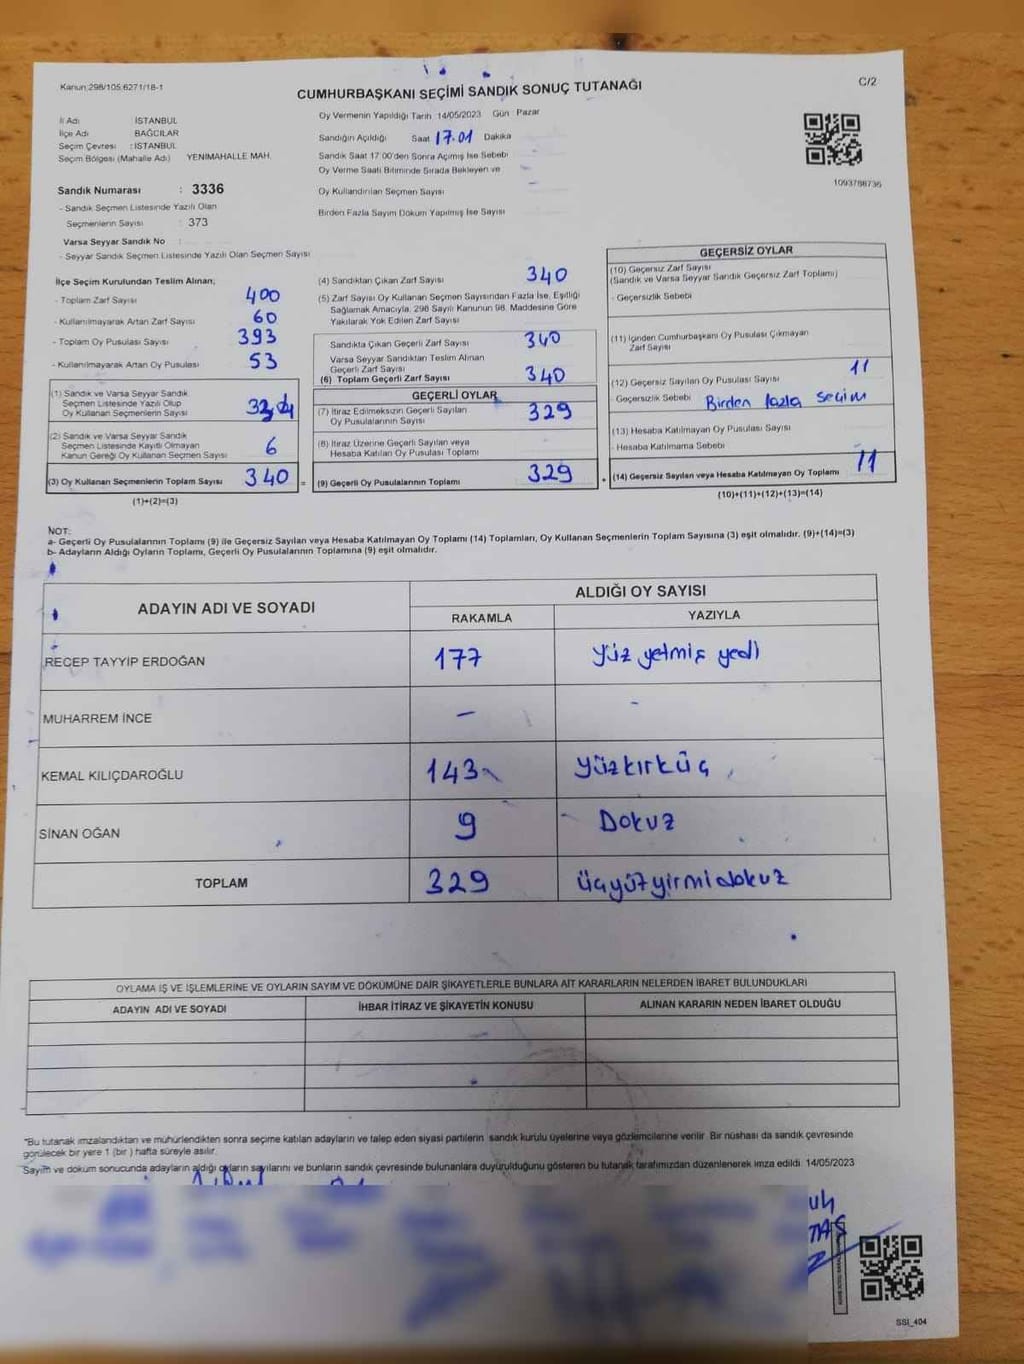 Kanun:298/105;6271/18-1
C/2
CUMHURBAŞKANI SEÇİMİ SANDIK SONUÇ TUTANAĞI
İl Adı : İSTANBUL
İlçe Adı BAĞCILAR
Seçim Çevresi : İSTANBUL
Seçim Bölgesi (Mahalle Adı) YENİMAHALLE MAH.
Sandık Numarası : 3336
- Sandık Seçmen Listesinde Yazılı Olan
Seçmenlerin Sayısı : 373
Varsa Seyyar Sandık No :
- Seyyar Sandık Seçmen Listesinde Yazılı Olan Seçmen Sayısı
Oy Vermenin Yapıldığı Tarih 14/05/2023 Gün Pazar
Sandığın Açıldığı Saat 17.01 Dakika
Sandık Saat 17:00'den Sonra Açılmış İse Sebebi
Oy Verme Saati Bitiminde Sırada Bekleyen ve
Oy Kullandırılan Seçmen Sayısı
Birden Fazla Sayım Döküm Yapılmış İse Sayısı
1093788736
İlçe Seçim Kurulundan Teslim Alınan;
- Toplam Zarf Sayısı 400
- Kullanılmayarak Artan Zarf Sayısı 60
- Toplam Oy Pusulası Sayısı 393
- Kullanılmayarak Artan Oy Pusulası 53
(1) Sandık ve Varsa Seyyar Sandık
Seçmen Listesinde Yazılı Olup
Oy Kullanan Seçmenlerin Sayısı
(2) Sandık ve Varsa Seyyar Sandık
Seçmen Listesinde Kayıtlı Olmayan
Kanun Gereği Oy Kullanan Seçmen Sayısı 6
(3) Oy Kullanan Seçmenlerin Toplam Sayısı 340 =
(1)+(2)=(3)
(4) Sandıktan Çıkan Zarf Sayısı 340
(5) Zarf Sayısı Oy Kullanan Seçmen Sayısından Fazla İse, Eşitliği
Sağlamak Amacıyla, 298 Sayılı Kanunun 98. Maddesine Göre
Yakılarak Yok Edilen Zarf Sayısı
Sandıkta Çıkan Geçerli Zarf Sayısı 340
Varsa Seyyar Sandıktan Teslim Alınan
Geçerli Zarf Sayısı
(6) Toplam Geçerli Zarf Sayısı 340
GEÇERLİ OYLAR
(7) İtiraz Edilmeksizin Geçerli Sayılan
Oy Pusulalarının Sayısı 329
(8) İtiraz Üzerine Geçerli Sayılan veya
Hesaba Katılan Oy Pusulası Toplamı
(9) Geçerli Oy Pusulalarının Toplamı 329 +
GEÇERSİZ OYLAR
(10) Geçersiz Zarf Sayısı
(Sandık ve Varsa Seyyar Sandık Geçersiz Zarf Toplamı)
- Geçersizlik Sebebi
(11) İçinden Cumhurbaşkanı Oy Pusulası Çıkmayan
Zarf Sayısı
(12) Geçersiz Sayılan Oy Pusulası Sayısı 11
- Geçersizlik Sebebi Birden fazla seçim
(13) Hesaba Katılmayan Oy Pusulası Sayısı
- Hesaba Katılmama Sebebi
(14) Geçersiz Sayılan veya Hesaba Katılmayan Oy Toplamı 11
(10)+(11)+(12)+(13)=(14)
NOT:
a- Geçerli Oy Pusulalarının Toplamı (9) ile Geçersiz Sayılan veya Hesaba Katılmayan Oy Toplamı (14) Toplamları, Oy Kullanan Seçmenlerin Toplam Sayısına (3) eşit olmalıdır. (9)+(14)=(3)
b- Adayların Aldığı Oyların Toplamı, Geçerli Oy Pusulalarının Toplamına (9) eşit olmalıdır.
ADAYIN ADI VE SOYADI
ALDIĞI OY SAYISI
RAKAMLA YAZIYLA
RECEP TAYYİP ERDOĞAN 177 Yüz yetmiş yedi
MUHARREM İNCE - -
KEMAL KILIÇDAROĞLU 143 Yüzkırküç
SİNAN OĞAN 9 Dokuz
TOPLAM 329 üçyüzyirmidokuz
OYLAMA İŞ VE İŞLEMLERİNE VE OYLARIN SAYIM VE DÖKÜMÜNE DAİR ŞİKAYETLERLE BUNLARA AİT KARARLARIN NELERDEN İBARET BULUNDUKLARI
ADAYIN ADI VE SOYADI İHBAR İTİRAZ VE ŞİKAYETİN KONUSU ALINAN KARARIN NEDEN İBARET OLDUĞU
*Bu tutanak imzalandıktan ve mühürlendikten sonra seçime katılan adayların ve talep eden siyasi partilerin sandık kurulu üyelerine veya gözlemcilerine verilir. Bir nüshası da sandık çevresinde
görülecek bir yere 1 (bir) hafta süreyle asılır.
Sayım ve döküm sonucunda adayların aldığı oyların sayılarını ve bunların sandık çevresinde bulunanlara duyurulduğunu gösteren bu tutanak tarafımızdan düzenlenerek imza edildi. 14/05/2023
SSI_404